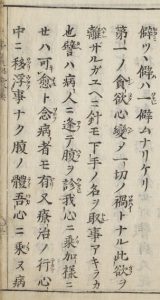 僻ツノ僻ハ一僻ムナリケリ
第一ノ貪欲心變〆一切ノ禍トナル此欲ヲ
離ザルガユヘニ針モ下手ノ名ヲ取事アキラカ
也譬ハ病人ニ逢テ腹ヲ診我心ニ乗加様ニ
セハ可愈ト念病者モ有又療治ノ行心
中ニ移浮事ナク腹ノ體吾心ニ乗ス病